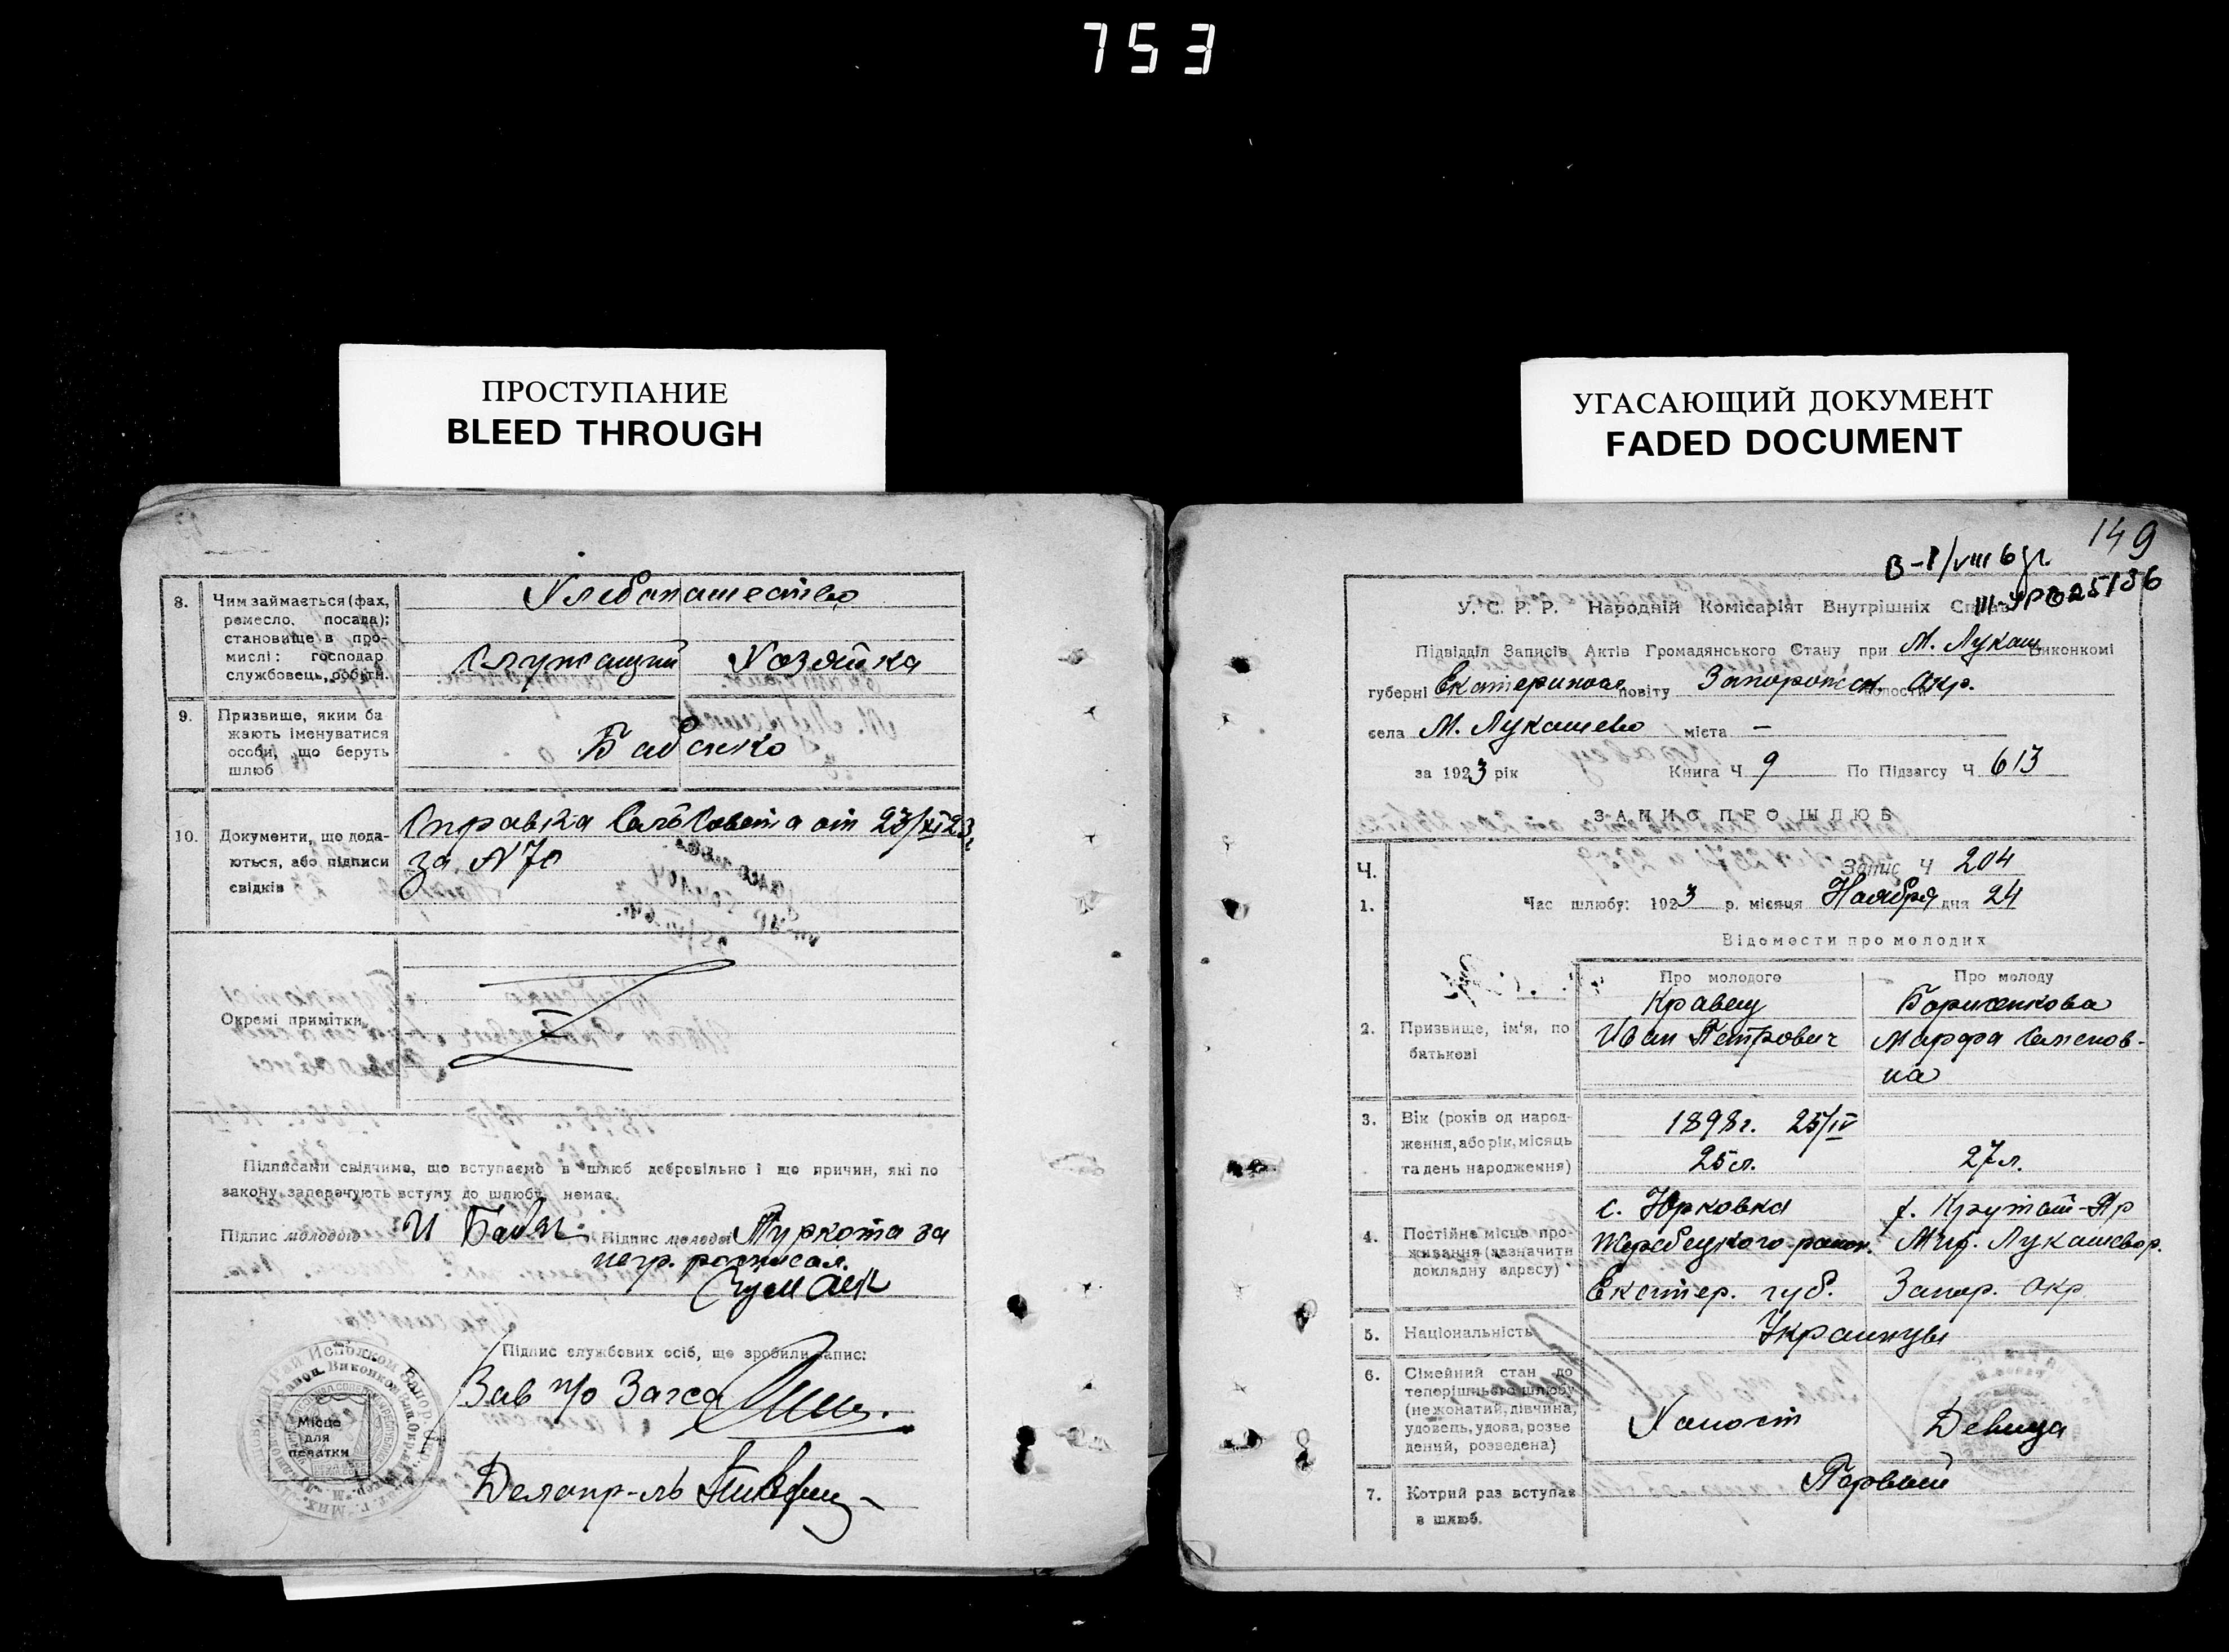 753
ПРОСТУПАНИЕ
BLEED THROUGH
8.
Чим займається (фах,
ремесло, посада);
становище в про-
мислі: господар
службовець, робітн.
Хлебопашество
Служащий Хозяйка
9.
Призвище, яким ба
жають іменуватися
особи, що беруть
шлюб
Бабенко
10.
Документи, що дода-
ються, або підписи
свідків
Справка СельСовета от 23/XI 23
за N 70
Окремі примітки
Підписами свідчимо, що вступаємо в шлюб добровільно і що причин, які по
закону заперечують вступу до шлюбу, немає.
Підпис молодого И Бабен. Підпис молодої Туркота за
негр. расписал.
Підпис службових осіб, що зробили запис:
Зав п/о Загса
Делопр-ль
Місце
для
печатки
УГАСАЮЩИЙ ДОКУМЕНТ
FADED DOCUMENT
149
У. С. Р. Р. Народній Комісаріят Внутрішніх
Підвідділ Записів Актів Громадянського Стану при М. Лукаш Виконкомі
губерні Екатериносл повіту Запорожск. Окр.
села М. Лукашево міста —
за 1923 рік Книга Ч 9 По Підзагсу Ч 613
ЗАПИС ПРО ШЛЮБ
Ч.
Запис Ч 204
1.
Час шлюбу: 1923 р. місяця Ноября дня 24
Відомости про молодих
Про молодого Про молоду
2.
Призвище, ім'я, по
батькові
Кравец
Иван Петрович
Борисенкова
Марфа Семенов-
на
3.
Вік (років од народ-
ження, або рік, місяць
та день народження)
1898г. 25/IV
25 л.
27 л.
4.
Постійне місце про-
живання (зазначити
докладну адресу)
с. Юрковка
Жеребецкого район.
Екатер. губ.
Мих. Лукашевор.
Запор. Окр
5.
Національність
Украинцы
6.
Сімейний стан до
теперішнього шлюбу
(нежонатий, дівчина,
удовець, удова, розве
дений, розведена)
Холост
Девица
7.
Котрий раз вступає
в шлюб.
Первый